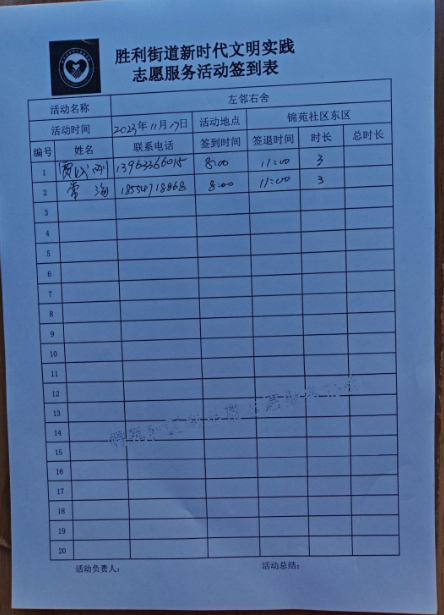 胜利街道新时代文明实践
志愿服务活动签到表
活动名称 左邻右舍
活动时间 2023年11月17日 活动地点 锦苑社区东区
编号 姓名 联系电话 签到时间 签退时间 时长 总时长
1 13963366015 8:00 11:00 3
2 常海 18554718868 8:00 11:00 3
3
4
5
6
7
8
9
10
11
12
13
14
15
16
17
18
19
20
活动负责人: 活动总结: